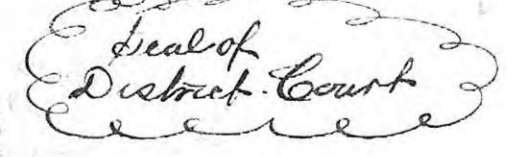 Seal of
District Court